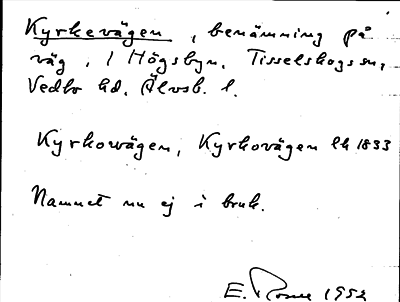 Kyrkevägen, benämning på
väg, i Högsbyn, Tisselskogs sn,
Vedbo hd. Älvsb. l.
Kyrkowägen, Kyrkovägen lh 1833
Namnet nu ej i bruk.
E. 1952